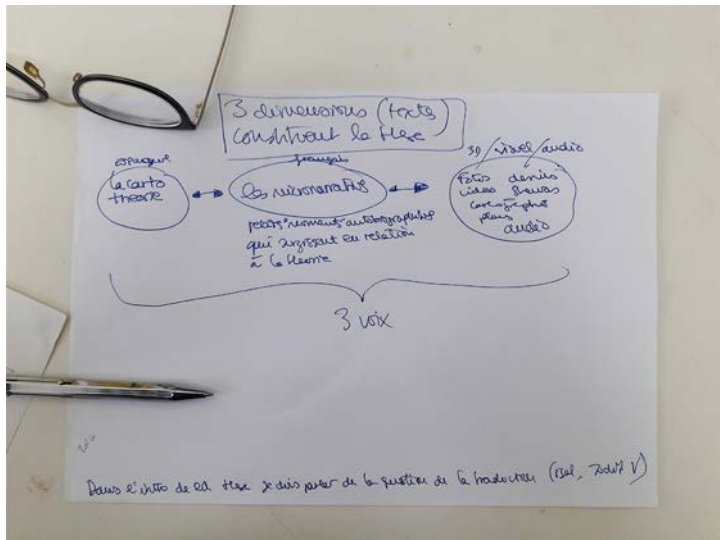 3 dimensions (texte)
constituent la these
espagnol
la carto
theorie
français
les micronarratifs
petits "moments" autobiographiques
qui surgissent en relation
à la theorie
3D / visuel / audio
fotos dessins
videos
cartographies
plans
audio
3 voix
Dans l'intro de la these je dois parler de la question de la traduction